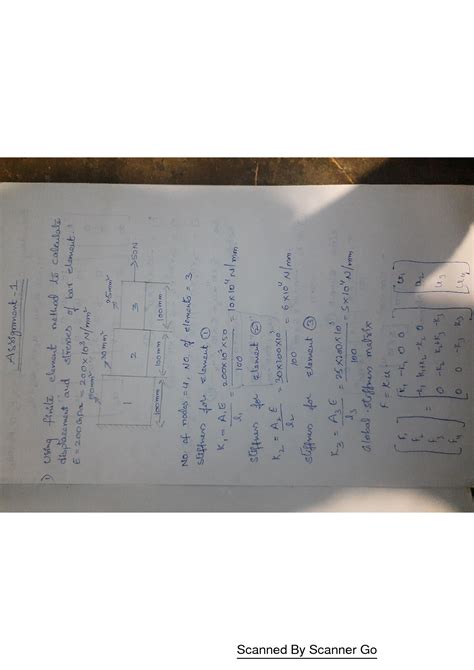 Assignment-1
1) Using finite element method to calculate
displacement and stresses of bar element.
E = 200Gpa = 200×10³ N/mm²
50mm²
30mm²
25mm²
1
2
3
→50N
100mm
100mm
100mm
No. of nodes = 4, No. of elements = 3
stiffness for element ①
K₁ = A₁E / l₁ = 200×10³×50 / 100 = 10×10⁴ N/mm
stiffness for element ②
K₂ = A₂E / l₂ = 30×200×10³ / 100 = 6×10⁴ N/mm
stiffness for element ③
K₃ = A₃E / l₃ = 25×200×10³ / 100 = 5×10⁴ N/mm
Global stiffness matrix
F = Ku
F₁ K₁ -K₁ 0 0 u₁
F₂ = -K₁ K₁+K₂ -K₂ 0 u₂
F₃ 0 -K₂ K₂+K₃ -K₃ u₃
F₄ 0 0 -K₃ K₃ u₄
Scanned By Scanner Go